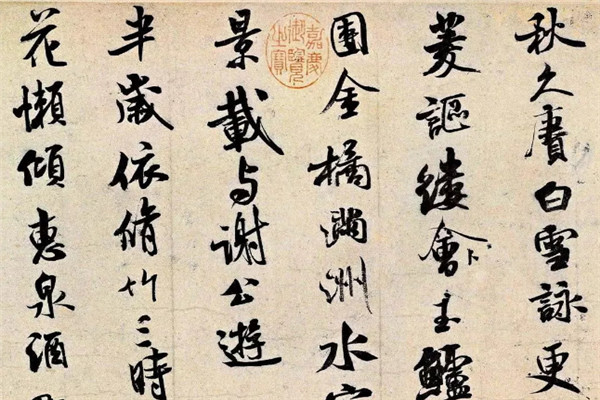 秋久賡白雪詠更
菱謳縷會玉鱸
團金橘滿洲水宮
景載与謝公遊
半歲依脩竹三時
花懶傾惠泉酒
嘉慶御覽之寶